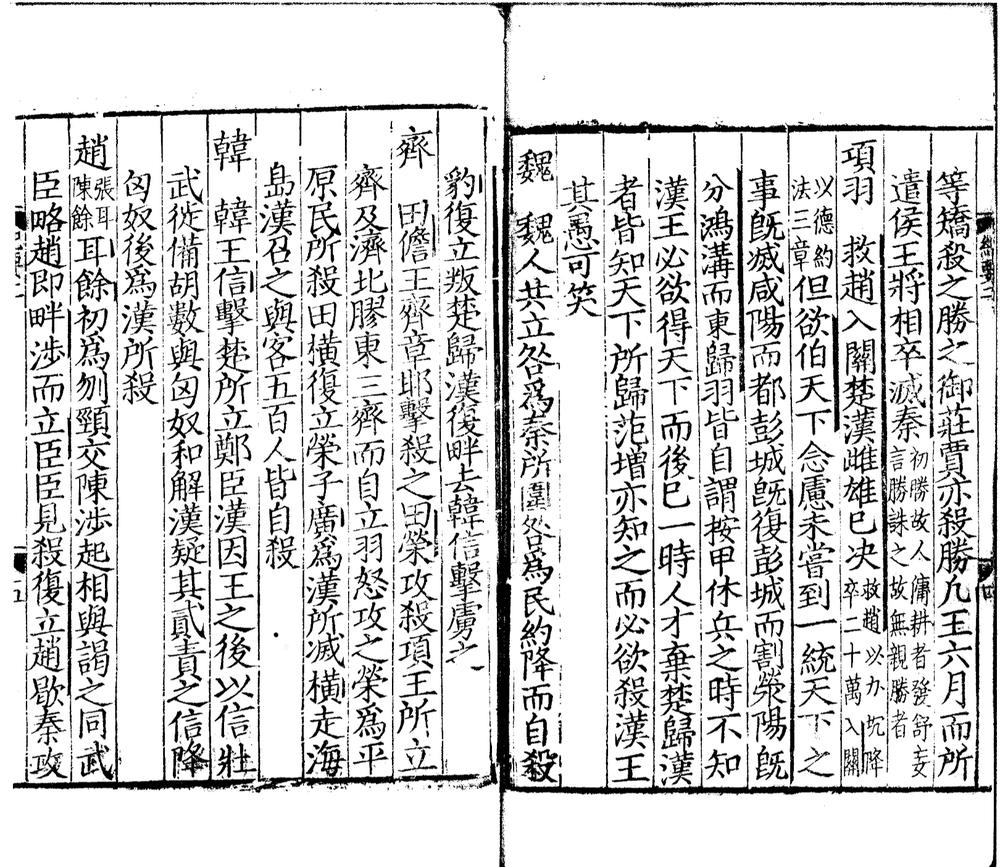 等矯殺之勝之御莊賈亦殺勝凡王六月而所
遣侯王將相卒滅秦初勝故人傭耕者發舒妄言勝誅之故無親勝者
項羽 救趙入關楚漢雌雄已决救趙以力坑降卒二十萬入關
以德約法三章但欲伯天下念慮未嘗到一統天下之
事旣滅咸陽而都彭城旣復彭城而割滎陽旣
分鴻溝而東歸羽皆自謂按甲休兵之時不知
漢王必欲得天下而後已一時人才棄楚歸漢
者皆知天下所歸范增亦知之而必欲殺漢王
其愚可笑
魏 魏人共立咎爲秦所圍咎爲民約降而自殺
豹復立叛楚歸漢復畔去韓信擊虜之
齊 田儋王齊章邯擊殺之田榮攻殺項王所立
齊及濟北膠東三齊而自立羽怒攻之榮爲平
原民所殺田橫復立榮子廣爲漢所滅橫走海
島漢召之與客五百人皆自殺
韓 韓王信擊楚所立鄭臣漢因王之後以信壯
武徙備胡數與匈奴和解漢疑其貳責之信降
匈奴後爲漢所殺
趙張耳陳餘耳餘初爲刎頸交陳涉起相與謁之同武
臣略趙即畔涉而立臣臣見殺復立趙歇秦攻